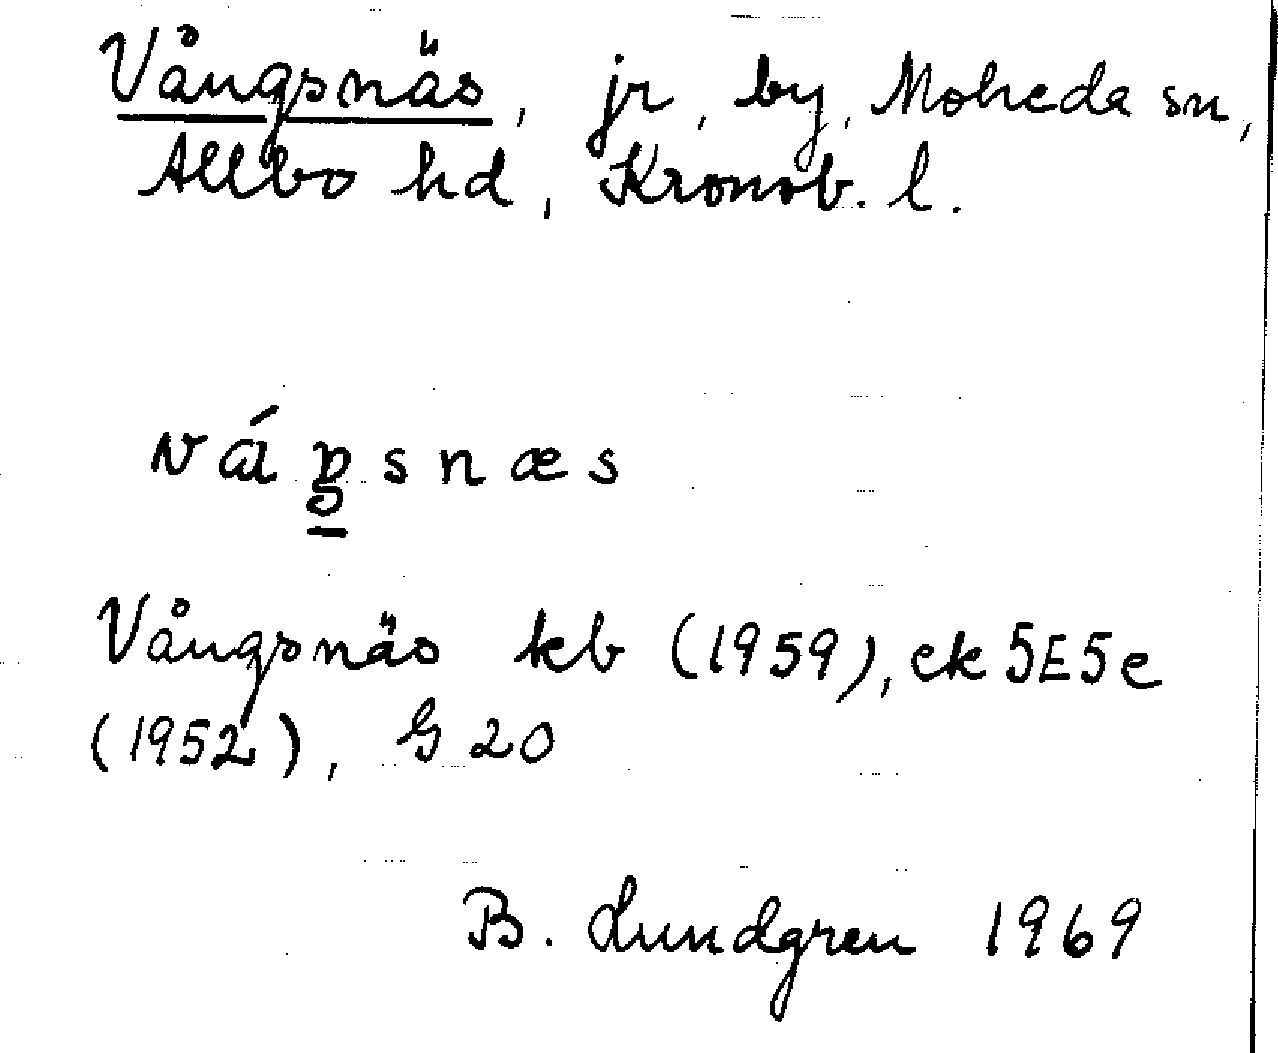 Vångsnäs, jr, by, Moheda sn,
Allbo hd, Kronob. l.
snæs
Vångsnäs kb (1959), ek 5E5e
(1952), G 20
B. Lundgren 1969